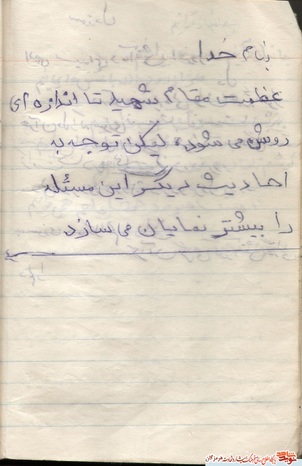 بنام خدا
عظمت مقام شهید تا اندازه ای
روشن می شود، لیکن توجه به
احادیث دیگر این مسئله
را بیشتر نمایان می سازد